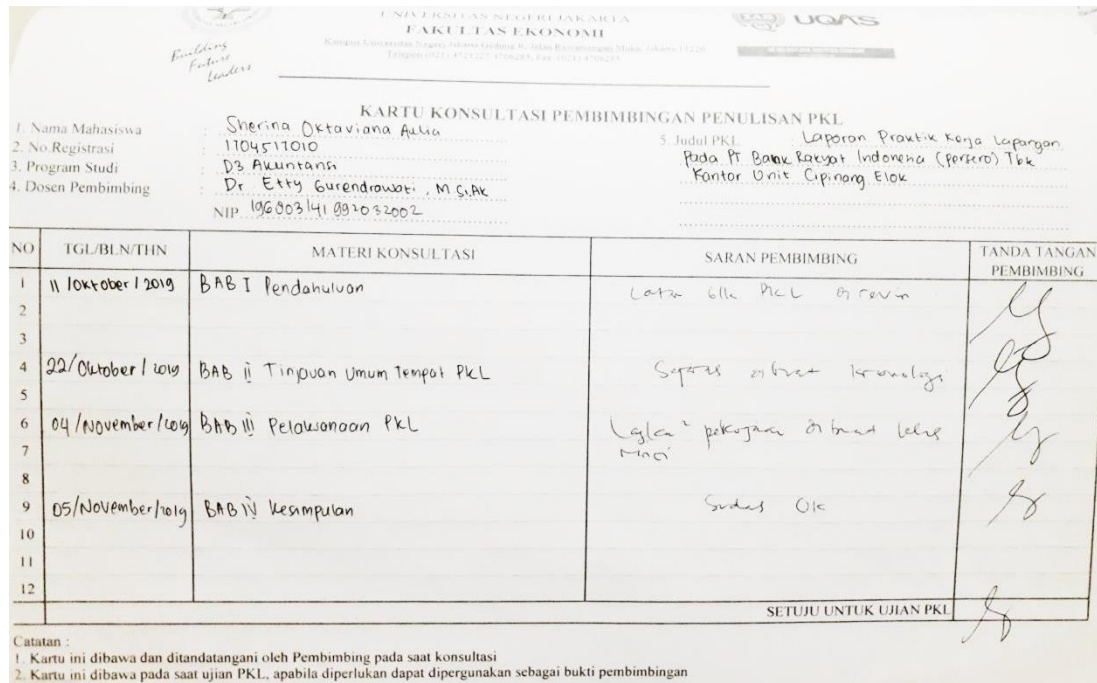 Building
Future
Leaders
UNIVERSITAS NEGERI JAKARTA
FAKULTAS EKONOMI
Kampus Universitas Negeri Jakarta Gedung R, Jalan Rawamangun Muka, Jakarta 13220
Telepon (021) 4721227/4706285, Fax: (021) 4706285
UQAS
KARTU KONSULTASI PEMBIMBINGAN PENULISAN PKL
1. Nama Mahasiswa : Sherina Oktaviana Aulia
2. No.Registrasi : 1704517010
3. Program Studi : D3 Akuntansi
4. Dosen Pembimbing : Dr. Etty Gurendrawati, M.Si,Ak
NIP. 196803141992032002
5. Judul PKL : Laporan Praktik Kerja Lapangan
Pada PT Bank Rakyat Indonesia (persero) Tbk
Kantor Unit Cipinang Elok
NO TGL/BLN/THN MATERI KONSULTASI SARAN PEMBIMBING TANDA TANGAN PEMBIMBING
1 11/Oktober/2019 BAB I Pendahuluan Latar blk PKL di revisi
2
3
4 22/Oktober/2019 BAB II Tinjauan Umum Tempat PKL dibuat kronologi
5
6 04/November/2019 BAB III Pelaksanaan PKL pekerjaan dibuat lebih
rinci
7
8
9 05/November/2019 BAB IV Kesimpulan Sudah OK
10
11
12
SETUJU UNTUK UJIAN PKL
Catatan :
1. Kartu ini dibawa dan ditandatangani oleh Pembimbing pada saat konsultasi
2. Kartu ini dibawa pada saat ujian PKL, apabila diperlukan dapat dipergunakan sebagai bukti pembimbingan